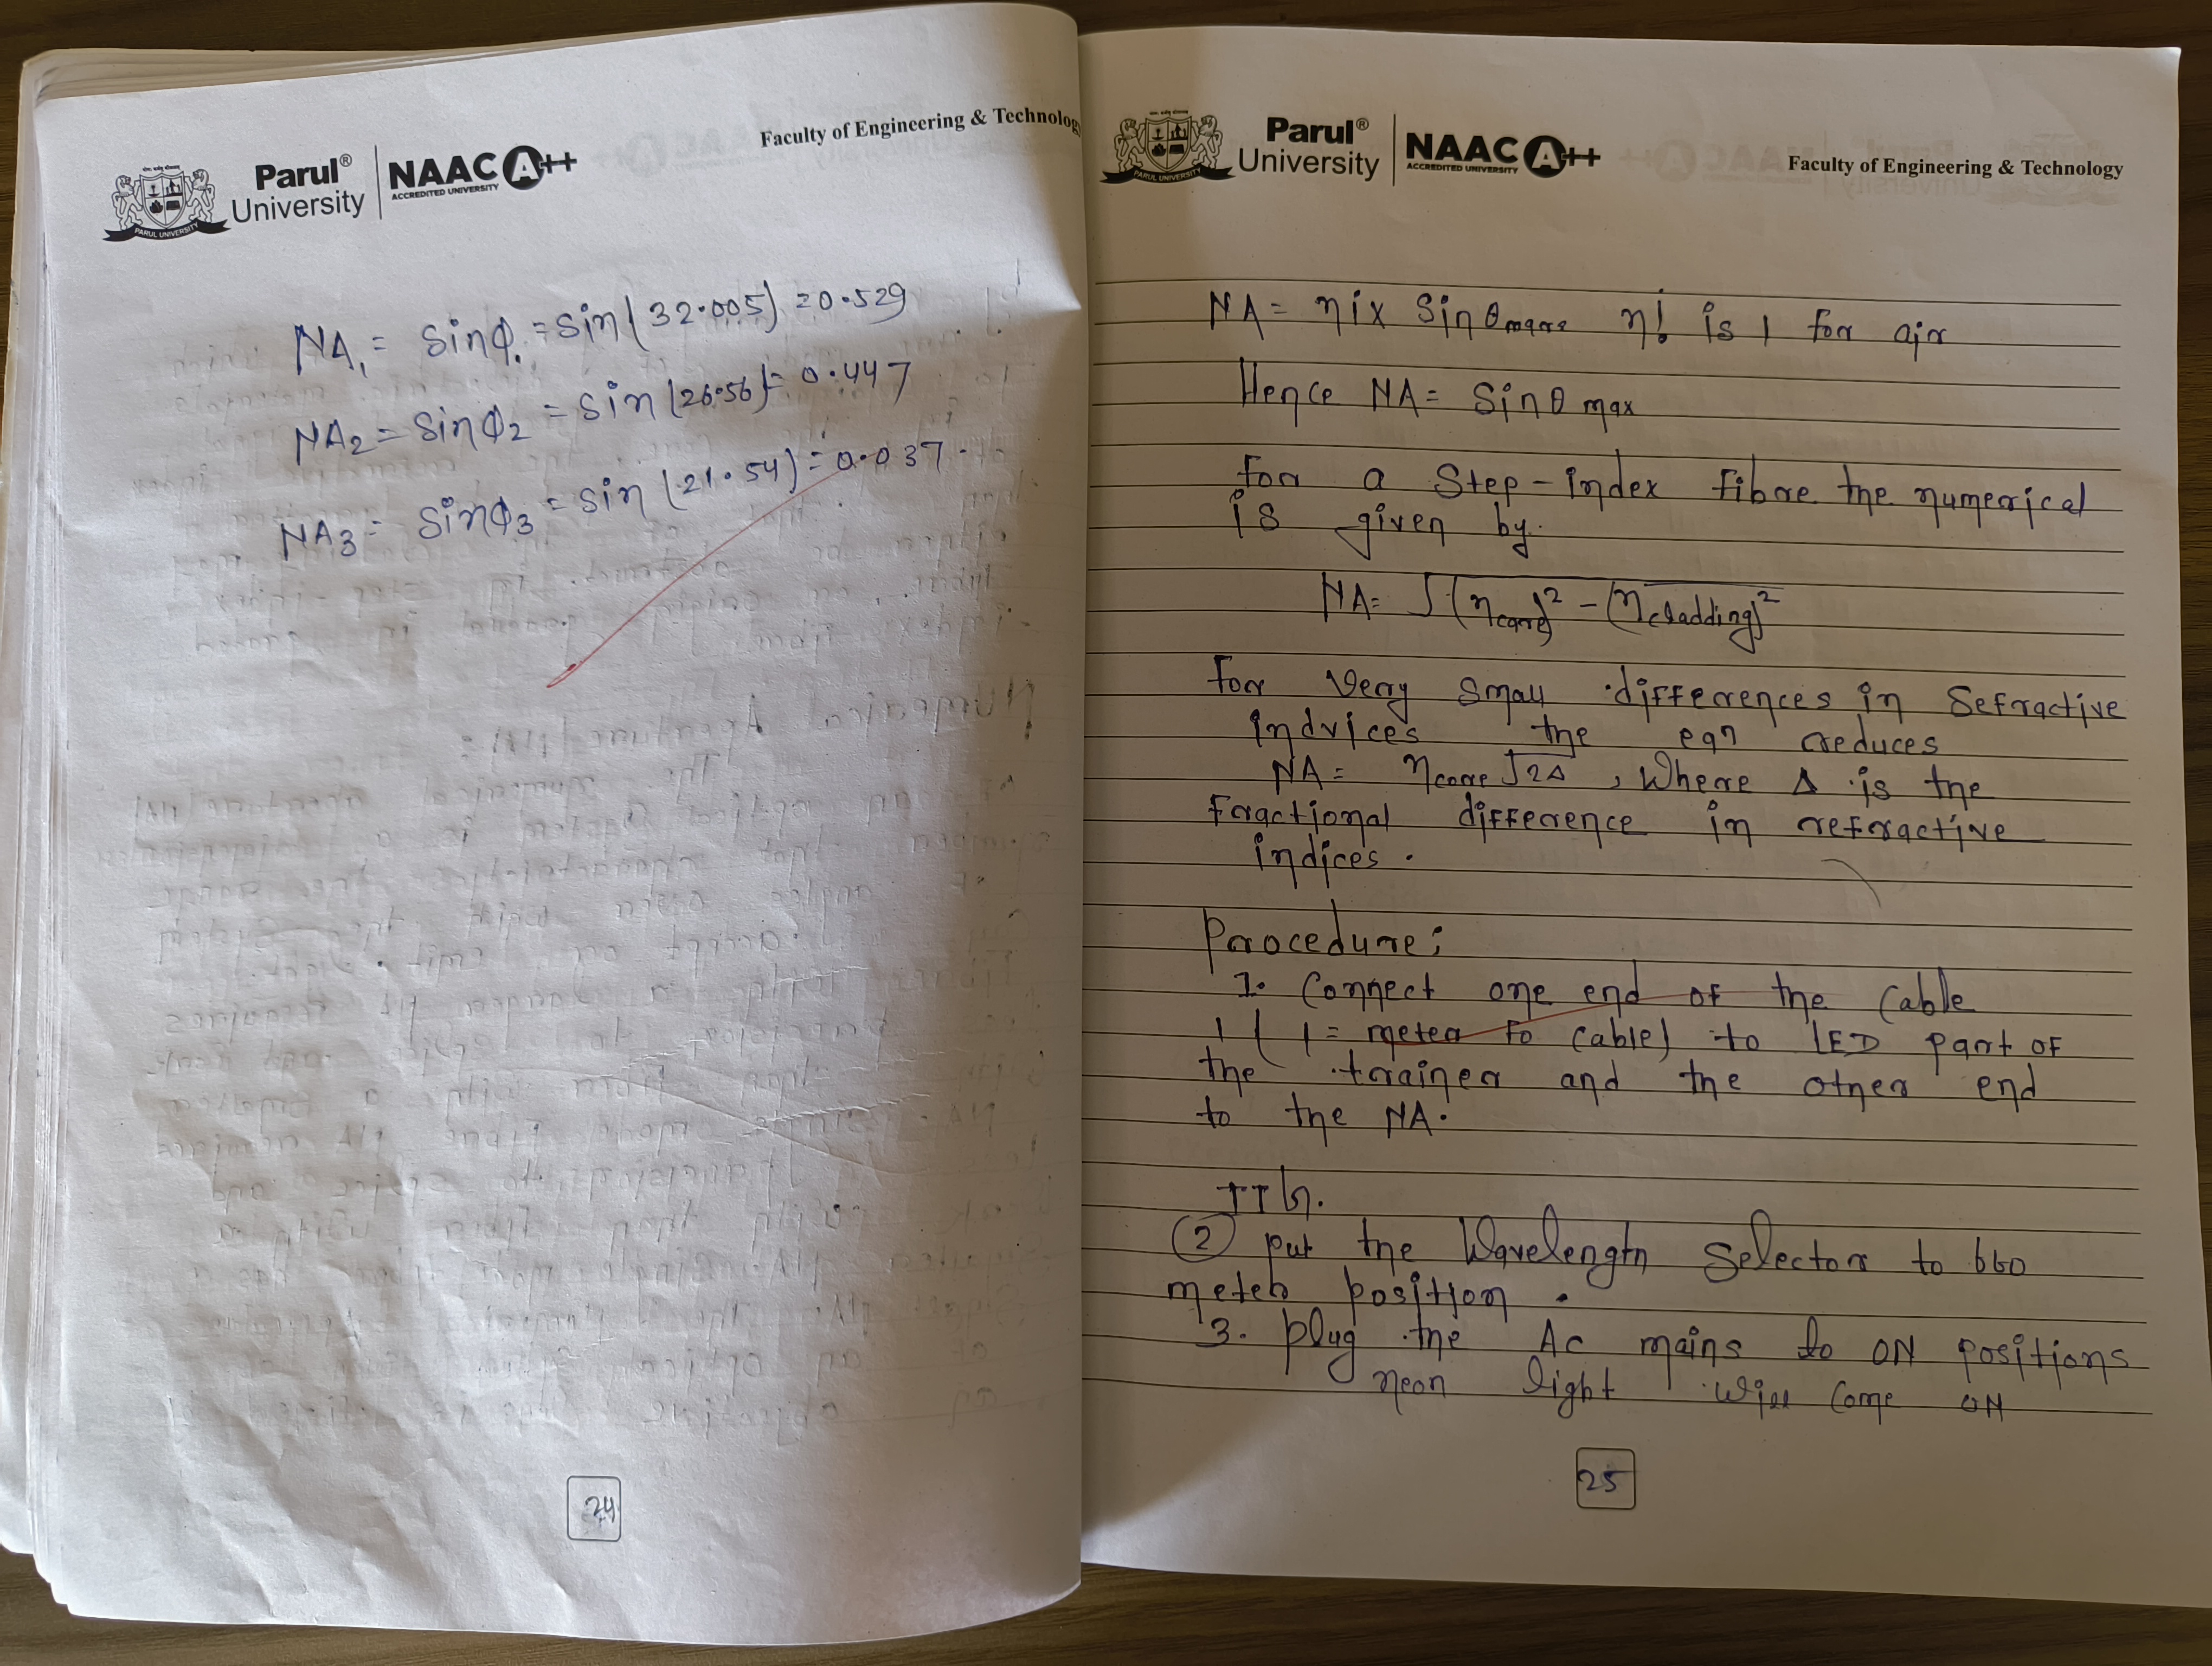 Parul®
University
NAAC A++
ACCREDITED UNIVERSITY
PARUL UNIVERSITY
Faculty of Engineering & Technology
NA₁ = Sinϕ₁ = Sin(32.005) = 0.529
NA₂ = Sinϕ₂ = Sin(26.56) = 0.447
NA₃ = Sinϕ₃ = Sin(21.54) = 0.037.
24
Parul®
University
NAAC A++
ACCREDITED UNIVERSITY
PARUL UNIVERSITY
Faculty of Engineering & Technology
NA = ηi x Sinθmax ηi is 1 for air
Hence NA = Sinθ max
for a Step-index Fibre the numerical
is given by.
NA = √(ηcore)² - (ηcladding)²
For Very Small differences in Sefractive
indvices the eqn reduces
NA = ηcore √2Δ , Where Δ is the
Fractional difference in refractive
indices.
Procedure:
1. Connect one end of the Cable
1 ( 1 = meter Fo Cable) to LED part of
the trainer and the other end
to the NA.
②  put the Wavelength Selector to 660
meter position.
3. Plug the AC mains to ON positions
neon light will Come ON
25